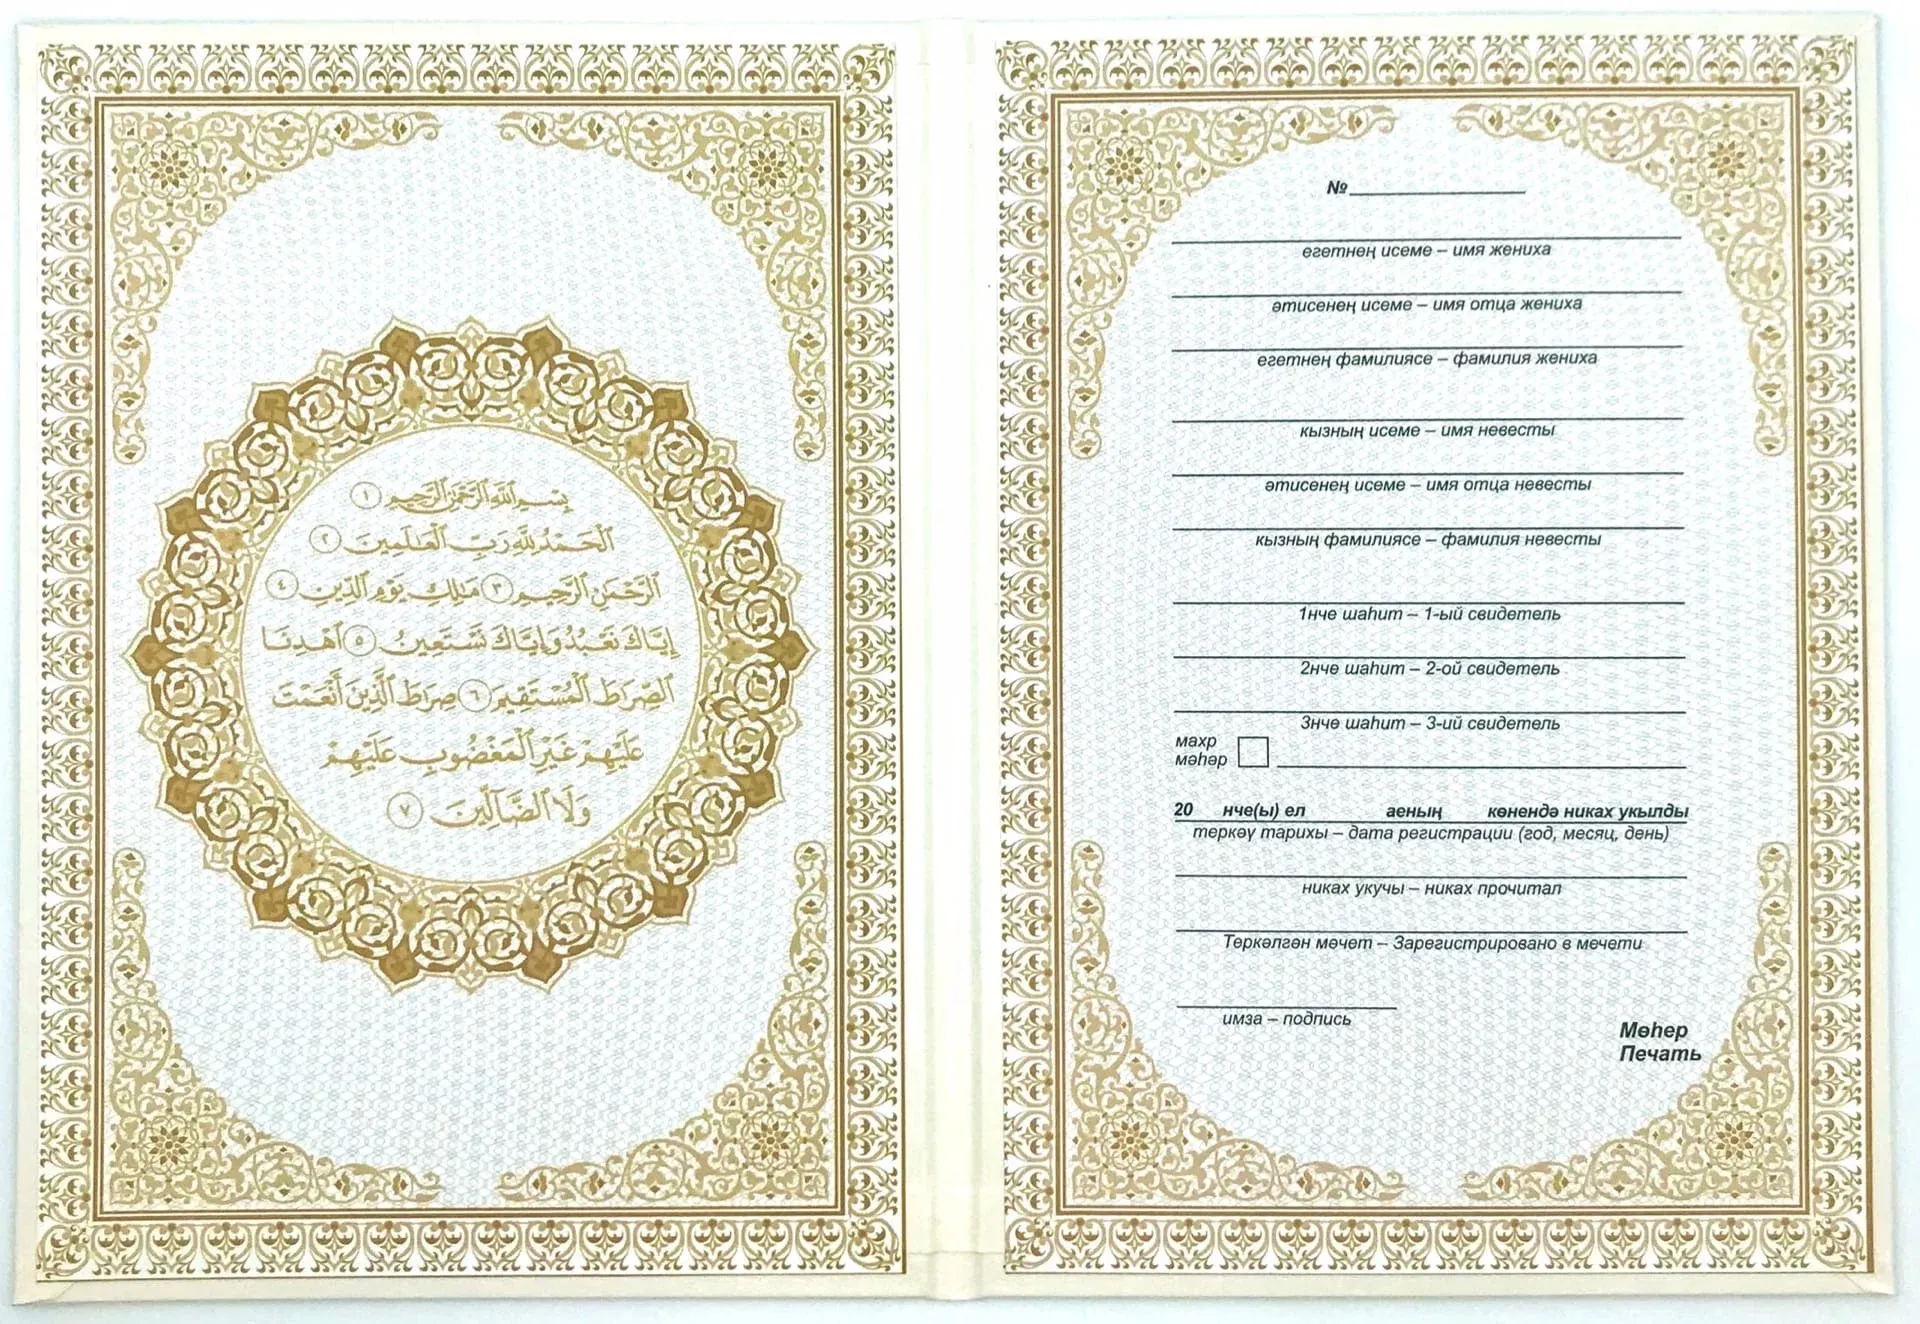 بِسْمِ ٱللَّهِ ٱلرَّحْمَٰنِ ٱلرَّحِيمِ ١
ٱلْحَمْدُ لِلَّهِ رَبِّ ٱلْعَٰلَمِينَ ٢
ٱلرَّحْمَٰنِ ٱلرَّحِيمِ ٣ مَٰلِكِ يَوْمِ ٱلدِّينِ ٤
إِيَّاكَ نَعْبُدُ وَإِيَّاكَ نَسْتَعِينُ ٥ ٱهْدِنَا
ٱلصِّرَٰطَ ٱلْمُسْتَقِيمَ ٦ صِرَٰطَ ٱلَّذِينَ أَنْعَمْتَ
عَلَيْهِمْ غَيْرِ ٱلْمَغْضُوبِ عَلَيْهِمْ
وَلَا ٱلضَّآلِّينَ ٧
№
егетнең исеме – имя жениха
әтисенең исеме – имя отца жениха
егетнең фамилиясе – фамилия жениха
кызның исеме – имя невесты
әтисенең исеме – имя отца невесты
кызның фамилиясе – фамилия невесты
1нче шаһит – 1-ый свидетель
2нче шаһит – 2-ой свидетель
3нче шаһит – 3-ий свидетель
махр
мәһәр
20 нче(ы) ел аеның көнендә никах укылды
теркәү тарихы – дата регистрации (год, месяц, день)
никах укучы – никах прочитал
Теркәлгән мәчет – Зарегистрировано в мечети
имза – подпись
Мөһер
Печать